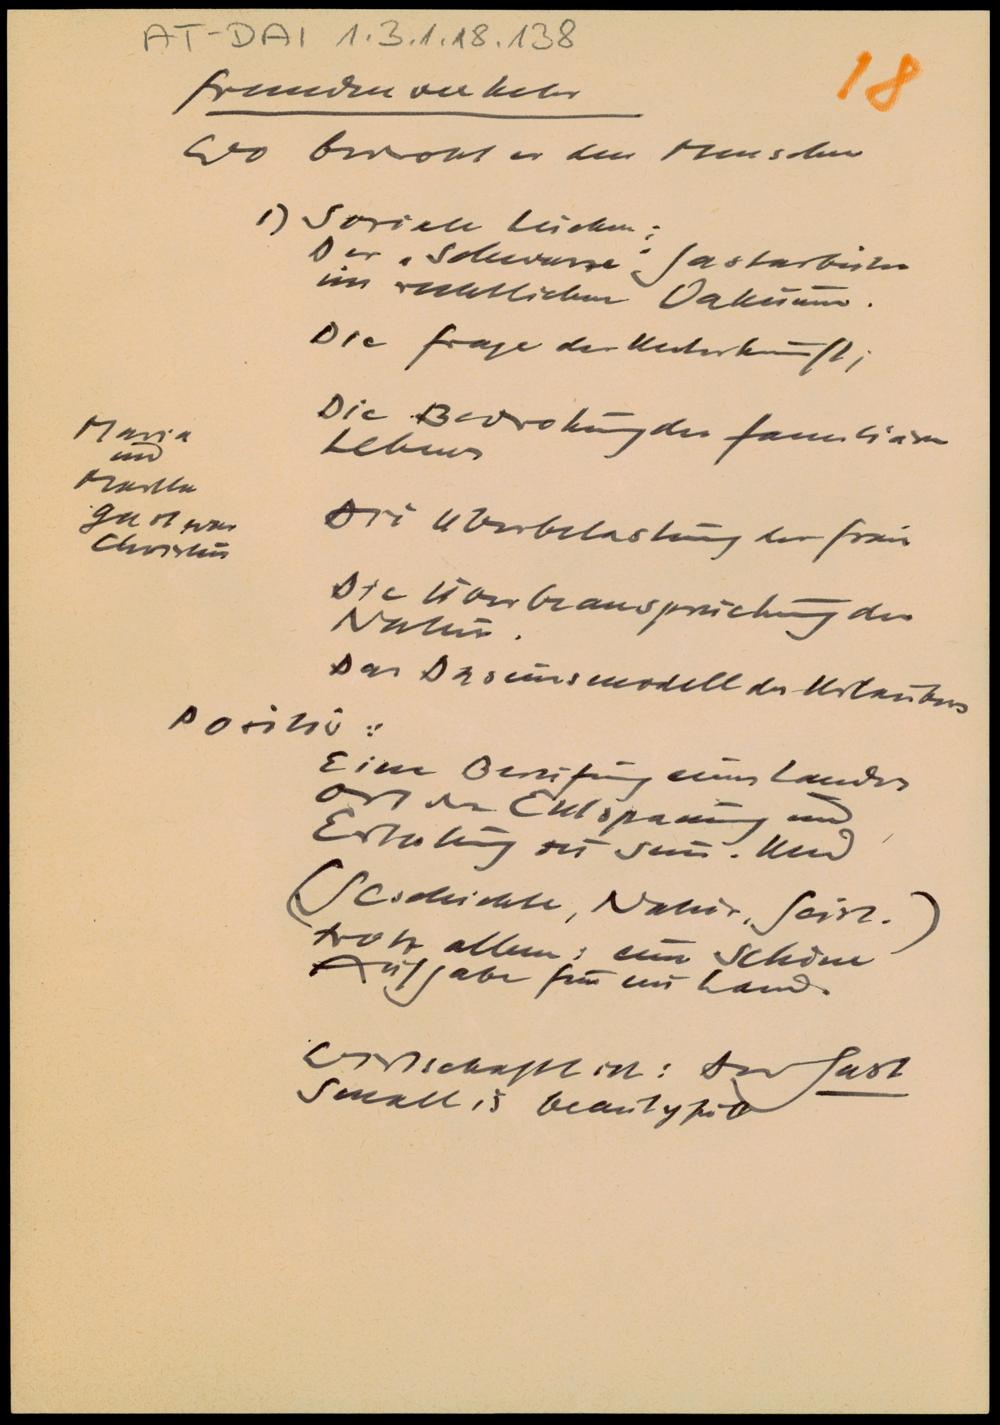 AT-DAI 1.3.1.18.138
18
Fremdenverkehr
Wo bedroht er den Menschen
1) Soziale Lücken:
Der "schwarze" Gastarbeiter
im rechtlichen Vakuum.
Die Frage der Unterkunft;
Die Bedrohung des familiären
Lebens
Maria
und
Martha
Gast war
Christus
Die Überbelastung der Frau
Die Überbeanspruchung der
Natur.
Das Daseinsmodell des Urlaubers
Positiv:
Eine Berufung eines Landes
Ort der Entspannung und
Erholung zu sein. Und
(Geschichte, Natur, Geist.)
trotz allem: eine schöne
Aufgabe für ein Land.
Wirtschaftlich: Der Gast
Small is beautyful